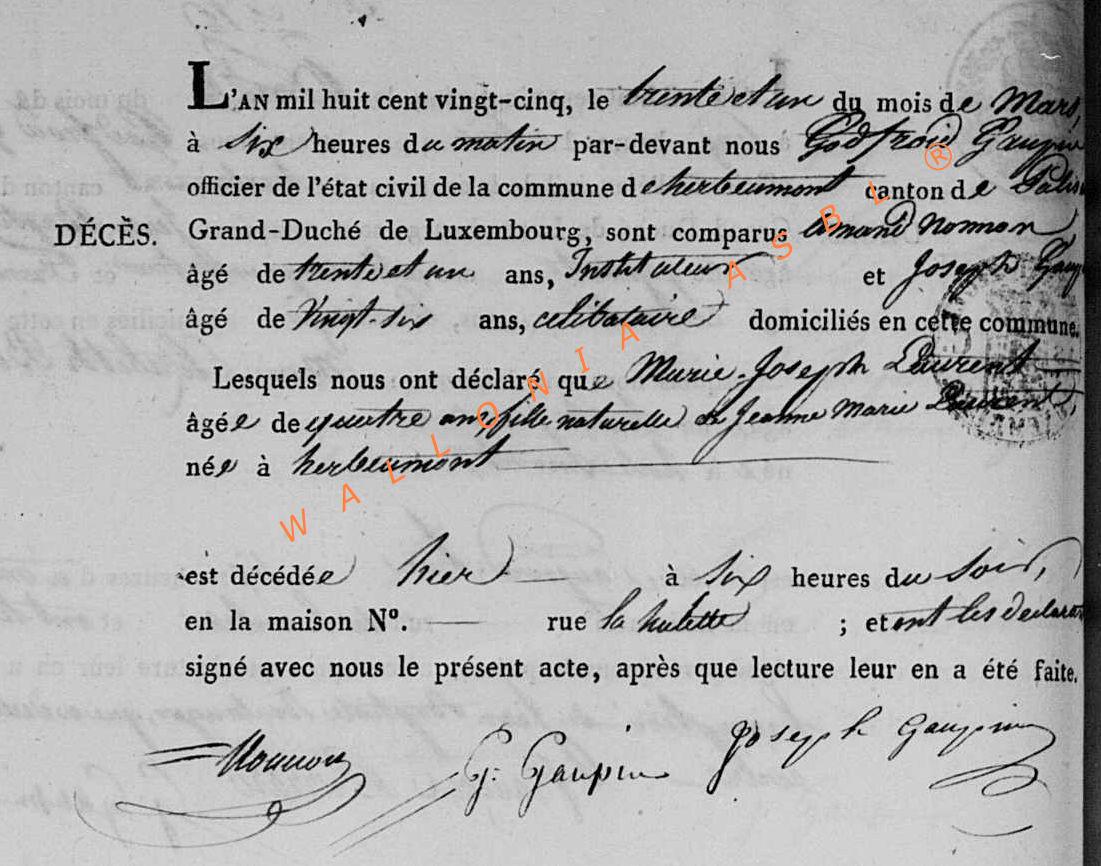 L'AN mil huit cent vingt-cinq, le trente et un du mois de Mars,
à six heures du matin par-devant nous Godfroid Gaupin
officier de l'état civil de la commune de herbeumont canton de
DÉCÈS. Grand-Duché de Luxembourg, sont comparus Nonnon
âgé de trente et un ans, Instituteur et Joseph
âgé de vingt-six ans, celibataire domiciliés en cette commune.
Lesquels nous ont déclaré que Marie-Joseph Laurent
âgée de quatre ans, fille naturelle de Jeanne Marie Laurent,
née à herbeumont
est décédée hier à six heures du soir,
en la maison N°. rue la hulette ; et ont les declarants
signé avec nous le présent acte, après que lecture leur en a été faite.
Nonnon G. Gaupin Joseph Gaupin
WALLONIA ASBL ®